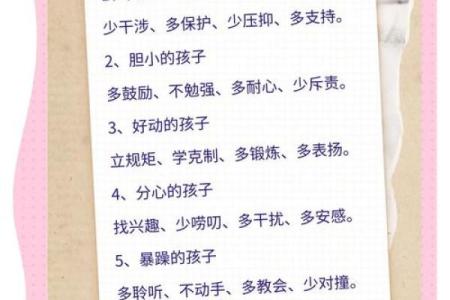 少干涉、多保护、少压抑、多支持。
2、胆小的孩子
多鼓励、不勉强、多耐心、少斥责。
3、好动的孩子
立规矩、学克制、多锻炼、多表扬。
4、分心的孩子
找兴趣、少唠叨、多干扰、多安感。
5、暴躁的孩子
多聆听、不动手、多教会、少对撞。